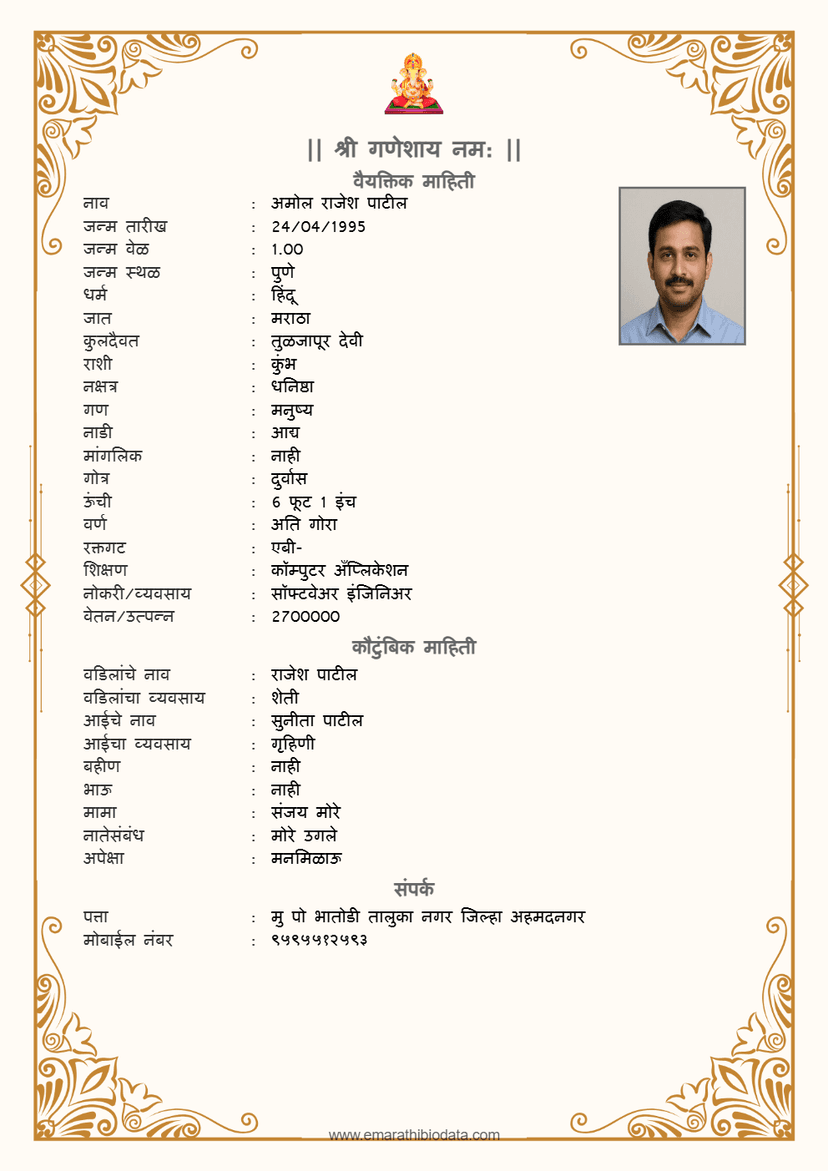 || श्री गणेशाय नम: ||
वैयक्तिक माहिती
नाव : अमोल राजेश पाटील
जन्म तारीख : 24/04/1995
जन्म वेळ : 1.00
जन्म स्थळ : पुणे
धर्म : हिंदू
जात : मराठा
कुलदैवत : तुळजापूर देवी
राशी : कुंभ
नक्षत्र : धनिष्ठा
गण : मनुष्य
नाडी : आद्य
मांगलिक : नाही
गोत्र : दुर्वास
ऊंची : 6 फूट 1 इंच
वर्ण : अति गोरा
रक्तगट : एबी-
शिक्षण : कॉम्पुटर अँप्लिकेशन
नोकरी/व्यवसाय : सॉफ्टवेअर इंजिनिअर
वेतन/उत्पन्न : 2700000
कौटुंबिक माहिती
वडिलांचे नाव : राजेश पाटील
वडिलांचा व्यवसाय : शेती
आईचे नाव : सुनीता पाटील
आईचा व्यवसाय : गृहिणी
बहीण : नाही
भाऊ : नाही
मामा : संजय मोरे
नातेसंबंध : मोरे उगले
अपेक्षा : मनमिळाऊ
संपर्क
पत्ता : मु पो भातोडी तालुका नगर जिल्हा अहमदनगर
मोबाईल नंबर : ९५९५५१२५९३
www.emarathibiodata.com